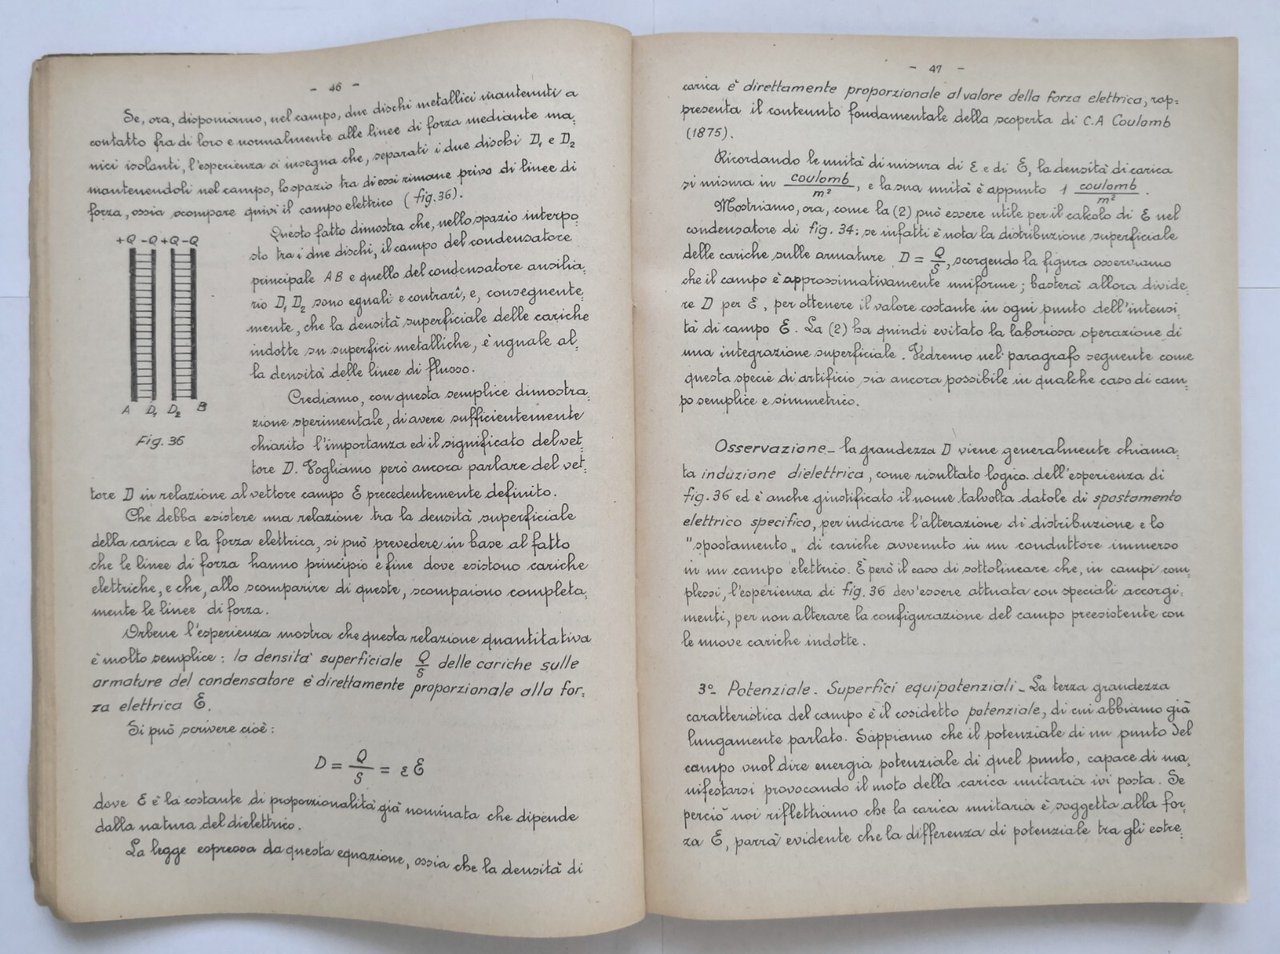 - 46 -
Se, ora, disponiamo, nel campo, due dischi metallici mantenuti a
contatto fra di loro e normalmente alle linee di forza mediante ma=
nici isolanti, l'esperienza ci insegna che, separati i due dischi D₁ e D₂
mantenendoli nel campo, lo spazio tra di essi rimane privo di linee di
forza, ossia scompare quivi il campo elettrico (fig. 36).
Questo fatto dimostra che, nello spazio interpo=
sto tra i due dischi, il campo del condensatore
principale AB e quello del condensatore ausilia=
rio D₁ D₂ sono eguali e contrarî, e, conseguente=
mente, che la densità superficiale delle cariche
indotte su superfici metalliche, è uguale al=
la densità delle linee di flusso.
Crediamo, con questa semplice dimostra=
zione sperimentale, di avere sufficientemente
chiarito l'importanza ed il significato del vet=
tore D. Vogliamo però ancora parlare del vet=
+Q -Q +Q -Q
A D₁ D₂ B
Fig. 36
tore D in relazione al vettore campo E precedentemente definito.
Che debba esistere una relazione tra la densità superficiale
della carica e la forza elettrica, si può prevedere in base al fatto
che le linee di forza hanno principio e fine dove esistono cariche
elettriche, e che, allo scomparire di queste, scompaiono completa=
mente le linee di forza.
Orbene l'esperienza mostra che questa relazione quantitativa
è molto semplice: la densità superficiale Q/S delle cariche sulle
armature del condensatore è direttamente proporzionale alla for=
za elettrica E.
Si può scrivere cioè:
D = Q/S = ε E
dove ε è la costante di proporzionalità già nominata che dipende
dalla natura del dielettrico.
La legge espressa da questa equazione, ossia che la densità di
- 47 -
carica è direttamente proporzionale al valore della forza elettrica, rap=
presenta il contenuto fondamentale della scoperta di C.A Coulomb
(1875).
Ricordando le unità di misura di ε e di E, la densità di carica
si misura in coulomb/m², e la sua unità è appunto 1 coulomb/m².
Mostriamo, ora, come la (2) può essere utile per il calcolo di E nel
condensatore di fig. 34: se infatti è nota la distribuzione superficiale
delle cariche sulle armature D = Q/S, scorgendo la figura osserviamo
che il campo è approssimativamente uniforme; basterà allora divide=
re D per ε, per ottenere il valore costante in ogni punto dell'intensi=
tà di campo E. La (2) ha quindi evitato la laboriosa operazione di
una integrazione superficiale. Vedremo nel paragrafo seguente come
questa specie di artificio sia ancora possibile in qualche caso di cam=
po semplice e simmetrico.
Osservazione - la grandezza D viene generalmente chiama=
ta induzione dielettrica, come risultato logico dell'esperienza di
fig. 36 ed è anche giustificato il nome talvolta datole di spostamento
elettrico specifico, per indicare l'alterazione di distribuzione e lo
"spostamento„ di cariche avvenuto in un conduttore immerso
in un campo elettrico. E però il caso di sottolineare che, in campi com=
plessi, l'esperienza di fig. 36 dev'essere attuata con speciali accorgi=
menti, per non alterare la configurazione del campo preesistente con
le nuove cariche indotte.
3º- Potenziale. Superfici equipotenziali - La terza grandezza
caratteristica del campo è il cosidetto potenziale, di cui abbiamo già
lungamente parlato. Sappiamo che il potenziale di un punto del
campo vuol dire energia potenziale di quel punto, capace di ma=
nifestarsi provocando il moto della carica unitaria ivi posta. Se
perciò noi riflettiamo che la carica unitaria è soggetta alla for=
za E, parrà evidente che la differenza di potenziale tra gli estre=